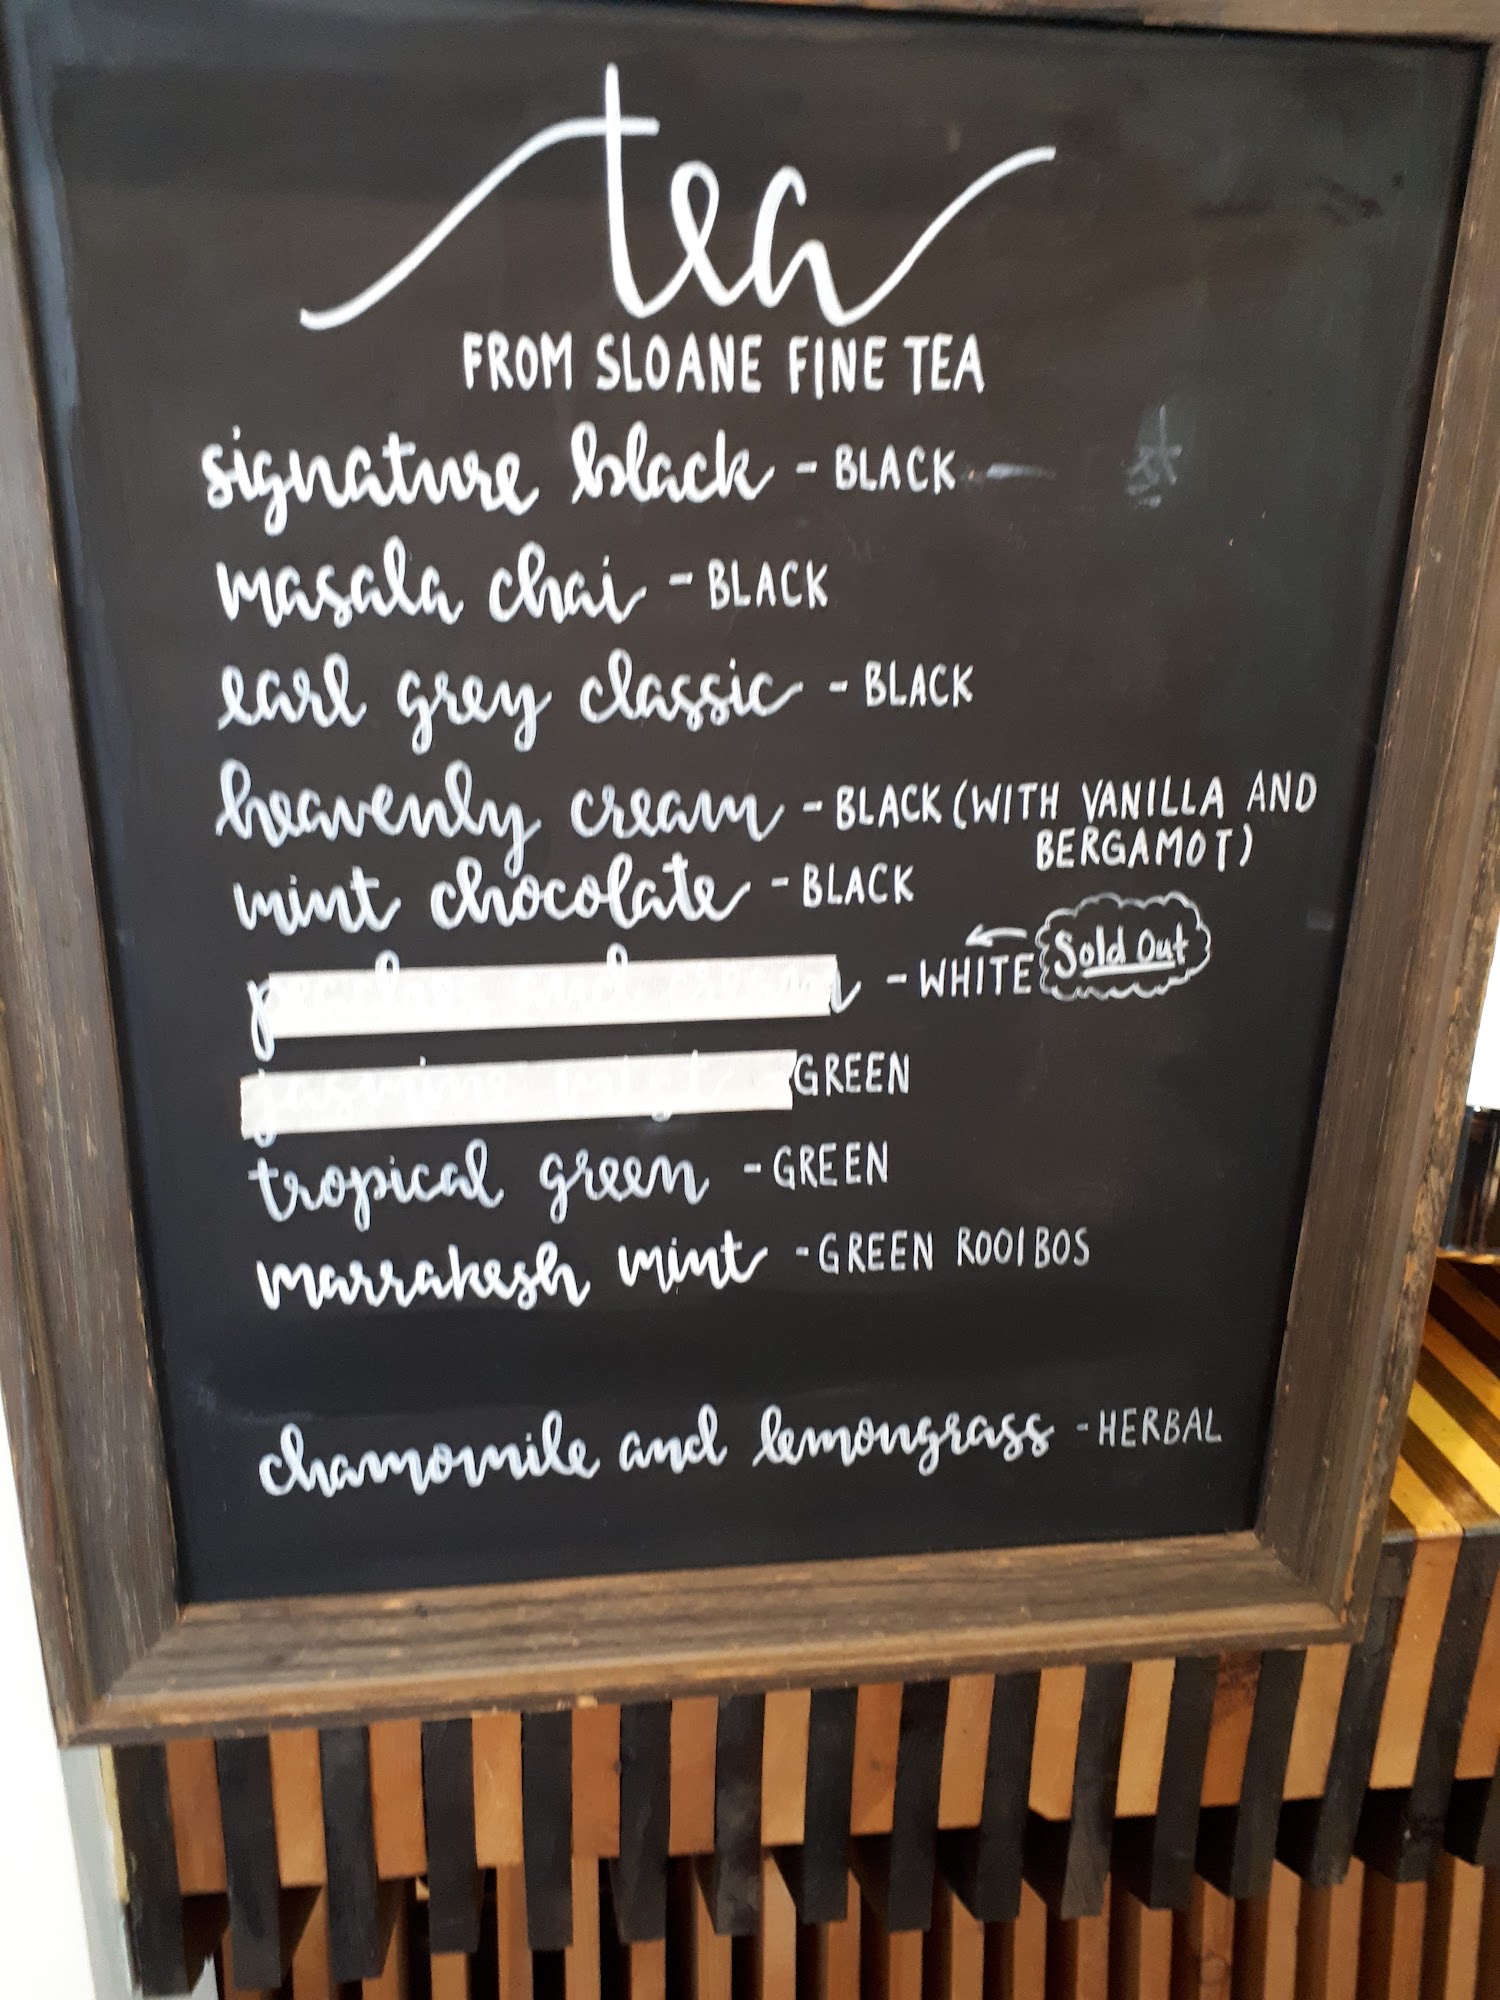 tea
FROM SLOANE FINE TEA
signature black - BLACK
masala chai - BLACK
earl grey classic - BLACK
heavenly cream - BLACK (WITH VANILLA AND
BERGAMOT)
mint chocolate - BLACK
- WHITE Sold Out
jasmine mist - GREEN
tropical green - GREEN
marrakesh mint - GREEN ROOIBOS
chamomile and lemongrass - HERBAL